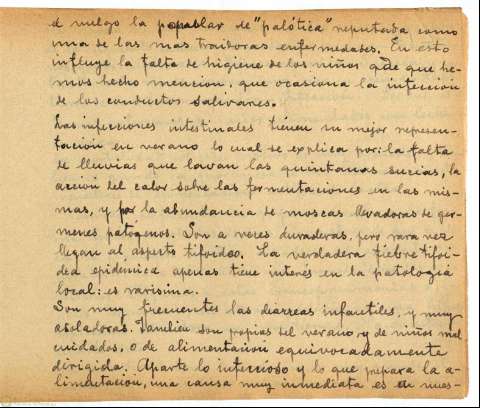 el vulgo la popablar de "palótica" reputada como
una de las mas traidoras enfermedades. En esto
influye la falta de higiene de los niños qde que he-
mos hecho mencion, que ocasiona la infeccion
de los conductos salivares.
Las infecciones intestinales tienen su mejor represen-
tación en verano lo cual se explica por: la falta
de lluvias que lavan las quintanas sucias, la
acción del calor sobre las fermentaciones en las mis-
mas, y por la abundancia de moscas llevadoras de ger-
menes patógenos. Son a veces duraderas, pero rara vez
llegan al aspecto tifoideo. La verdadera fiebre tifoi-
dea epidémica apenas tiene interes en la patologia
local: es rarisima.
Son muy frecuentes las diarreas infantiles, y muy
asoladoras. Tambien son propias del verano, y de niños mal
cuidados, o de alimentacion equivocadamente
dirigida. Aparte lo infeccioso y lo que prepara la a-
limentación, una causa muy inmediata es en nues-